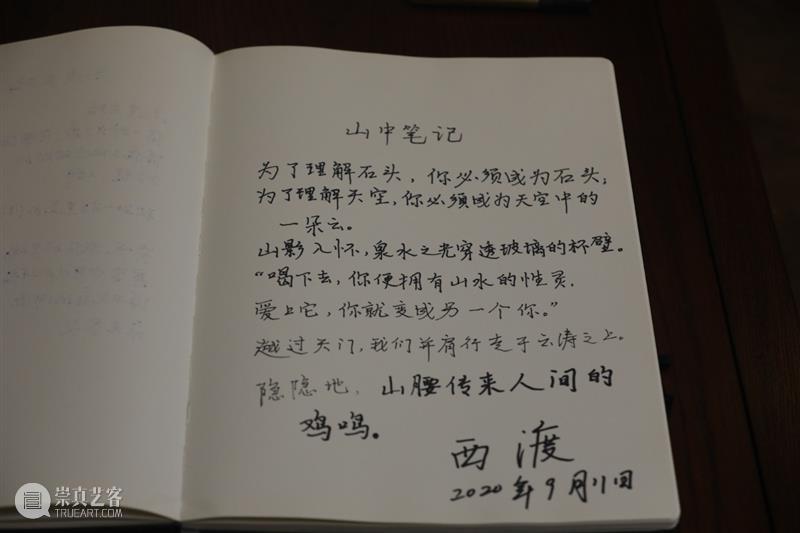 山中笔记
为了理解石头，你必须成为石头；
为了理解天空，你必须成为天空中的
一朵云。
山影入怀，泉水之光穿透玻璃的杯壁。
“喝下去，你便拥有山水的性灵．
爱上它，你就变成另一个你。”
越过天门，我们并肩行走于云涛之上。
隐隐地，山腰传来人间的
鸡鸣。
西渡
2020年9月11日
崇真艺客
TRUEART.COM